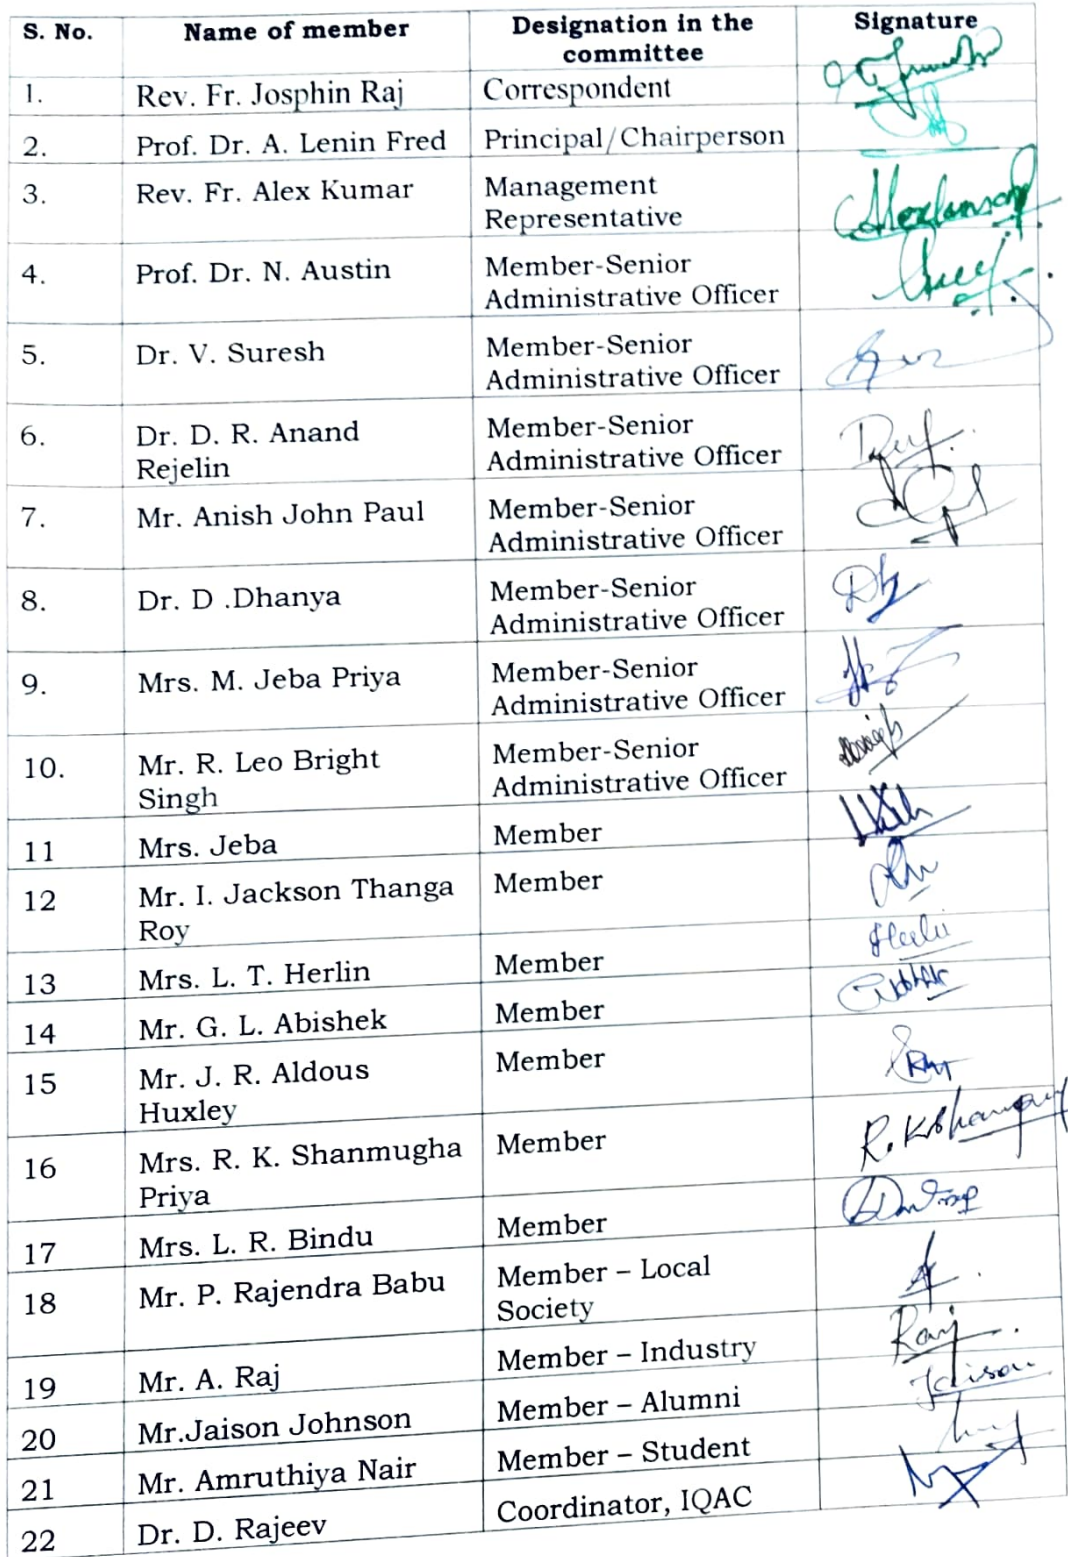 S. No. Name of member Designation in the Signature
committee
1. Rev. Fr. Josphin Raj Correspondent
2. Prof. Dr. A. Lenin Fred Principal/Chairperson
3. Rev. Fr. Alex Kumar Management
Representative
4. Prof. Dr. N. Austin Member-Senior
Administrative Officer
5. Dr. V. Suresh Member-Senior
Administrative Officer
6. Dr. D. R. Anand Member-Senior
Rejelin Administrative Officer
7. Mr. Anish John Paul Member-Senior
Administrative Officer
8. Dr. D .Dhanya Member-Senior
Administrative Officer
9. Mrs. M. Jeba Priya Member-Senior
Administrative Officer
10. Mr. R. Leo Bright Member-Senior
Singh Administrative Officer
11 Mrs. Jeba Member
12 Mr. I. Jackson Thanga Member
Roy
13 Mrs. L. T. Herlin Member
14 Mr. G. L. Abishek Member
15 Mr. J. R. Aldous Member
Huxley
16 Mrs. R. K. Shanmugha Member
Priya
17 Mrs. L. R. Bindu Member
18 Mr. P. Rajendra Babu Member – Local
Society
19 Mr. A. Raj Member – Industry Raj
20 Mr.Jaison Johnson Member – Alumni Jaison
21 Mr. Amruthiya Nair Member – Student
22 Dr. D. Rajeev Coordinator, IQAC